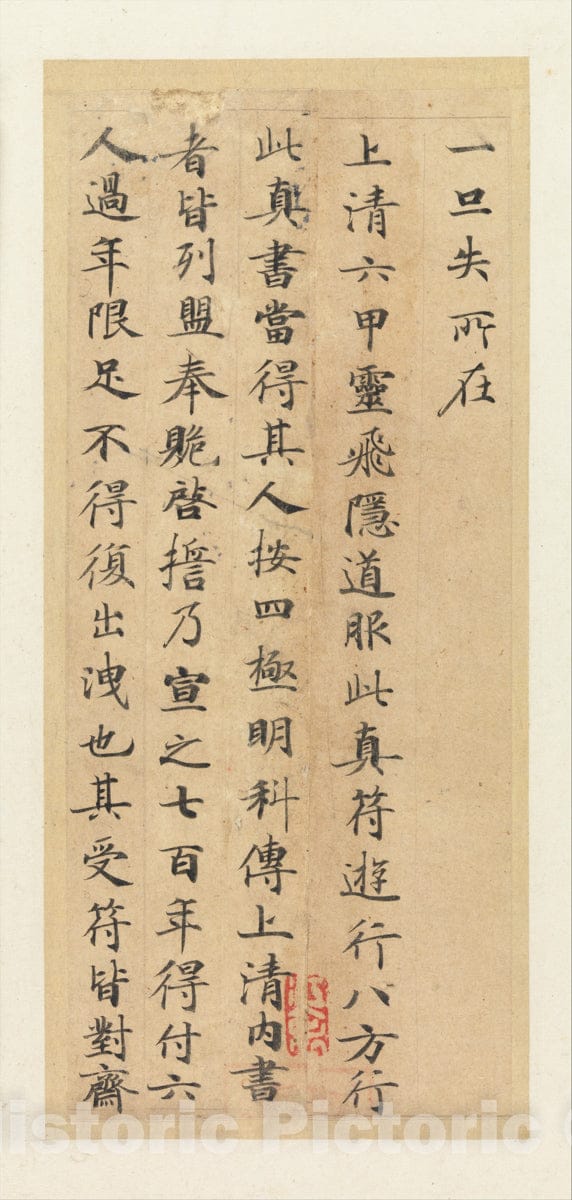 一旦失所在
上清六甲靈飛隱道服此真符遊行八方行
此真書當得其人按四極明科傳上清內書
者皆列盟奉跪啓擔乃宣之七百年得付六
人過年限足不得復出洩也其受符皆對齋
Historic Pictoric